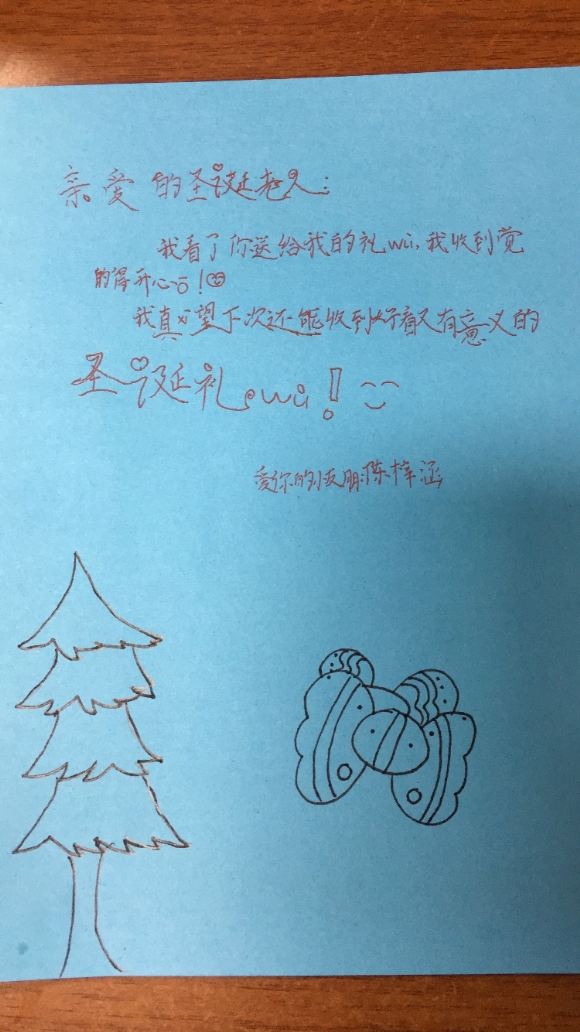 亲爱的圣诞老人：
我看了你送给我的礼wù，我收到觉
的得开心ō！
我真心望下次还能收到好看又有意义的
圣诞礼wù！
爱你的小友朋：陈梓涵